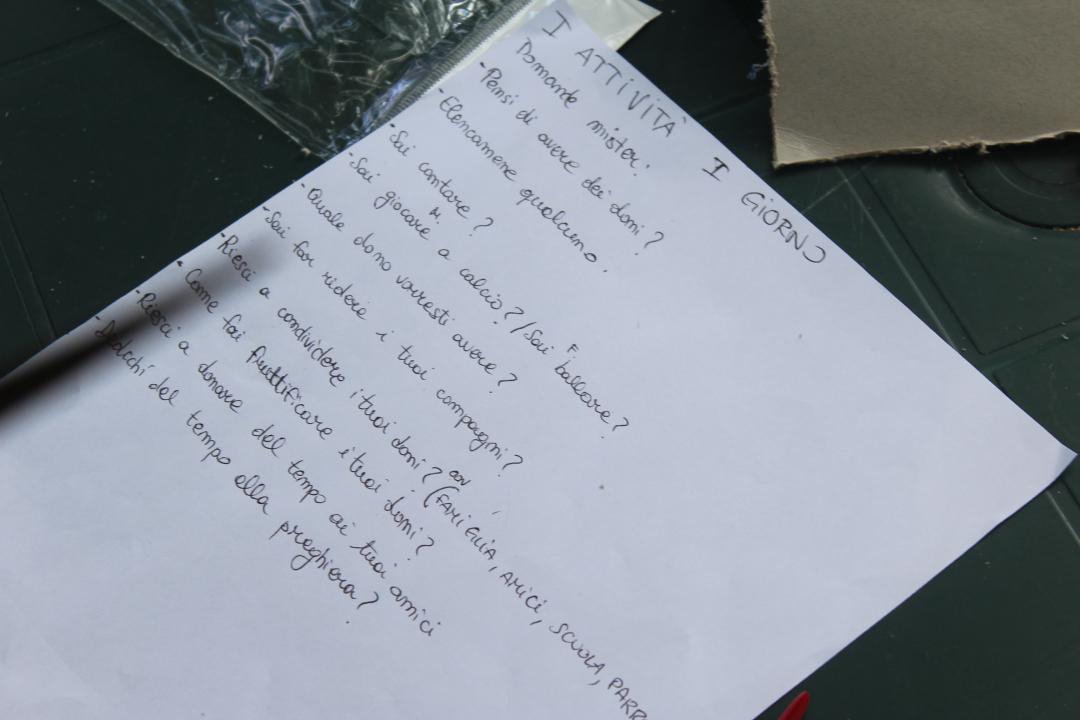 I ATTIVITÀ I GIORNO
Domande mister:
- Pensi di avere dei doni?
- Elencamene qualcuno.
- Sai cantare?
- Sai giocare a calcio? / Sai ballare?
M. F.
- Quale dono vorresti avere?
- Sai far ridere i tuoi compagni?
- Riesci a condividere i tuoi doni? (CON FAMIGLIA, AMICI, SCUOLA, PARR
- Come fai fruttificare i tuoi doni?
- Riesci a donare del tempo ai tuoi amici
- Dedichi del tempo alla preghiera?